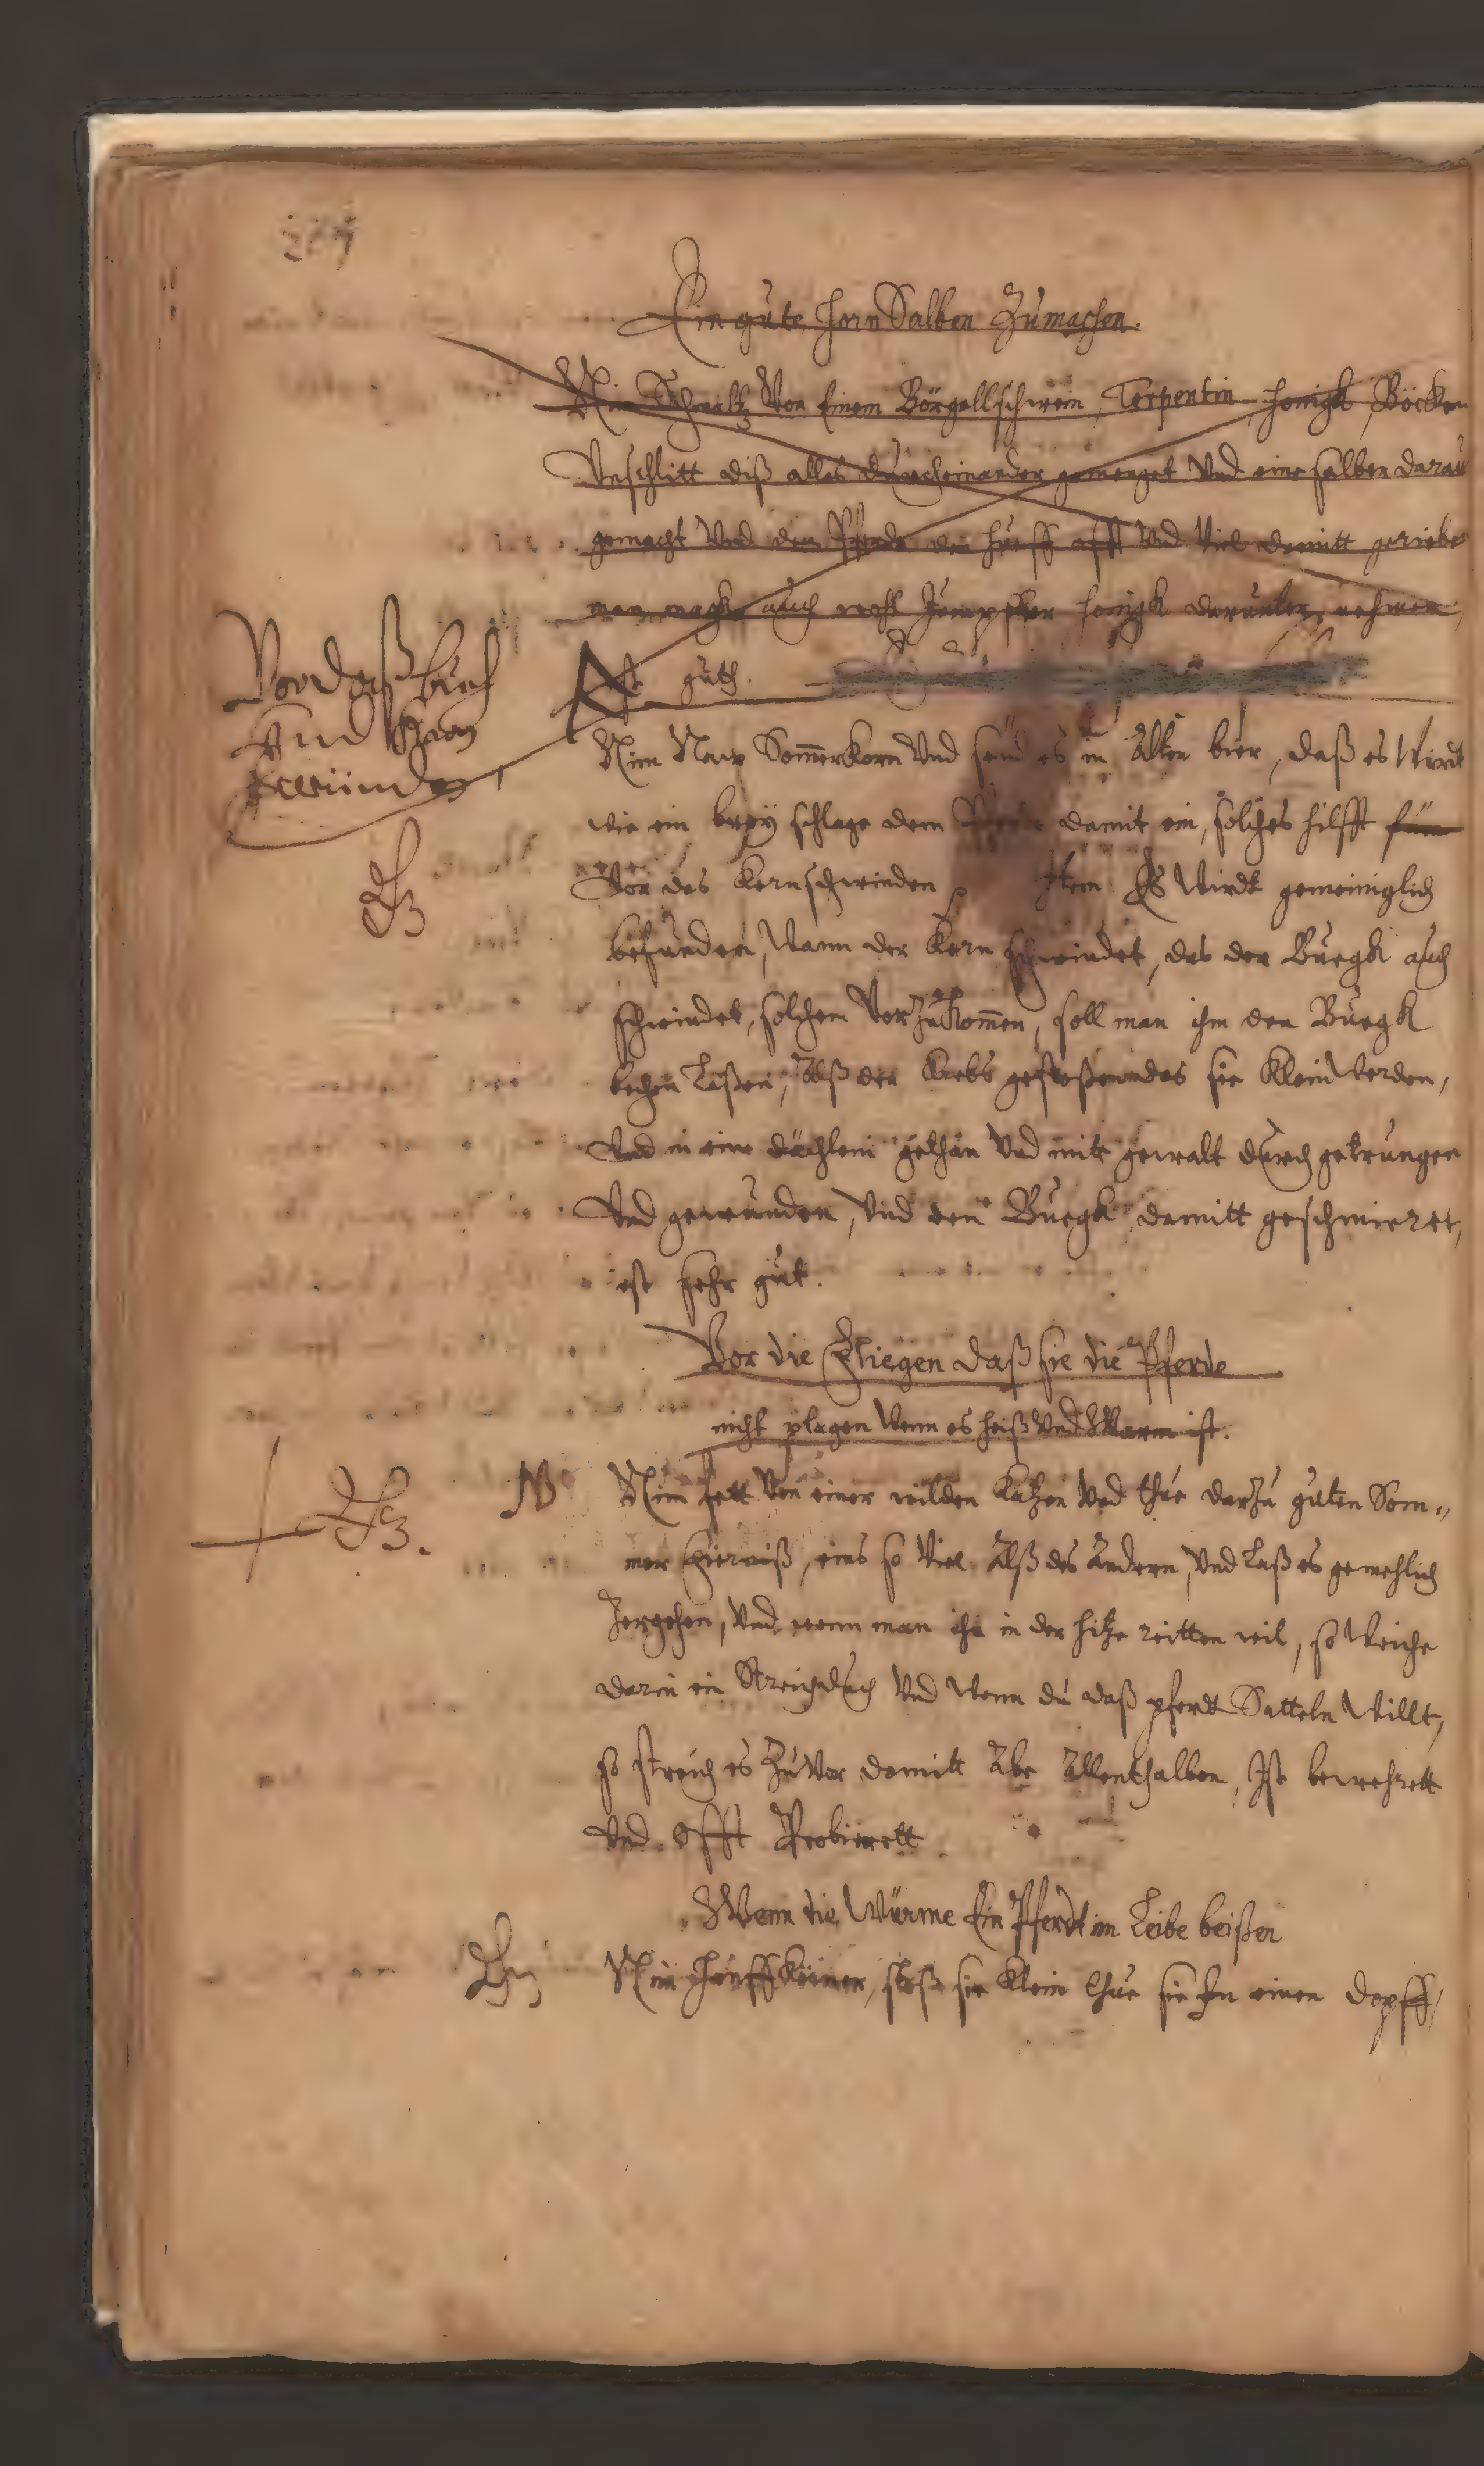 Ein gute Horn Salben Zumachen.
Nim Schmaltz Von Einem Börgellschwein, Terpentin, honigk, Böcken
Unschlitt diß alles durcheinander gemenget Vnd eine salben darau
gemacht Vnd dem Pferde den hueff offt Vnd Viel damitt geriebe
man magk auch wohl Jumpffer honigk darunter nehmen,
Ist guth.
Vor daß buch
Vnd Kern
schwinden
Nim New Sommerkorn Vnd seud es in Alten bier, daß es Wirdt
wie ein brey schlage dem Pferde damit ein, solches hilfft
Vor das Kernschwinden Item Es Wirdt gemeiniglich
befunden, Wann der Kern schwindet, das der Buegk auch
schwindet, solchem VorZukommen, soll man ihm den Buegk
Laßen, Alß den Krebs gestoßen das sie Klein Werden,
Vnd in eine düchlein gethan Vnd mitt gewalt durch getrungen
Vnd gewunden, Vnd den Buegk damitt geschmieret,
ist sehr gut.
Vor die Fliegen daß sie die Pferde
nicht plagen Wenn es heiß Vnd Warm ist.
NB Nim fett Von einer wilden Katzen Vnd thue darZu guten Som„
mer Fierniß, eins so Viel Alß des Andern, Vnd Laß es gemehlich
Zergehen, Vnd wenn man ihn in der hitze reitten wil, so Weiche
darin ein Streichduch Vnd Wenn du daß pferdt Satteln Willt,
so streich es ZuVor damitt Abe Allenthalben, Ist bewehrett
Vnd Offt Probierett
Wenn die Würme Ein Pferdt im Leibe beißen
Nim Hanffkörner, stoß sie Klein thue sie In einen dopff,